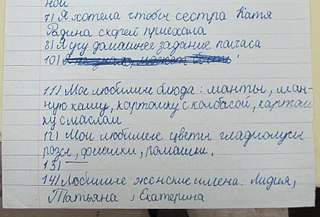 ной
7) Я хотела чтобы сестра Катя
Родина скорей приехала
8) Я иду домашнее задание
10)
11) Мое любимые блюда: манты, ман-
ную кашу, картошку с колбасой, картош
ку с маслом.
12) Мои любимые цветы гладиолусы
розы, фиалки, ромашки.
13) —
14) Любимые женские имена. Лидия,
Татьяна, Екатерина